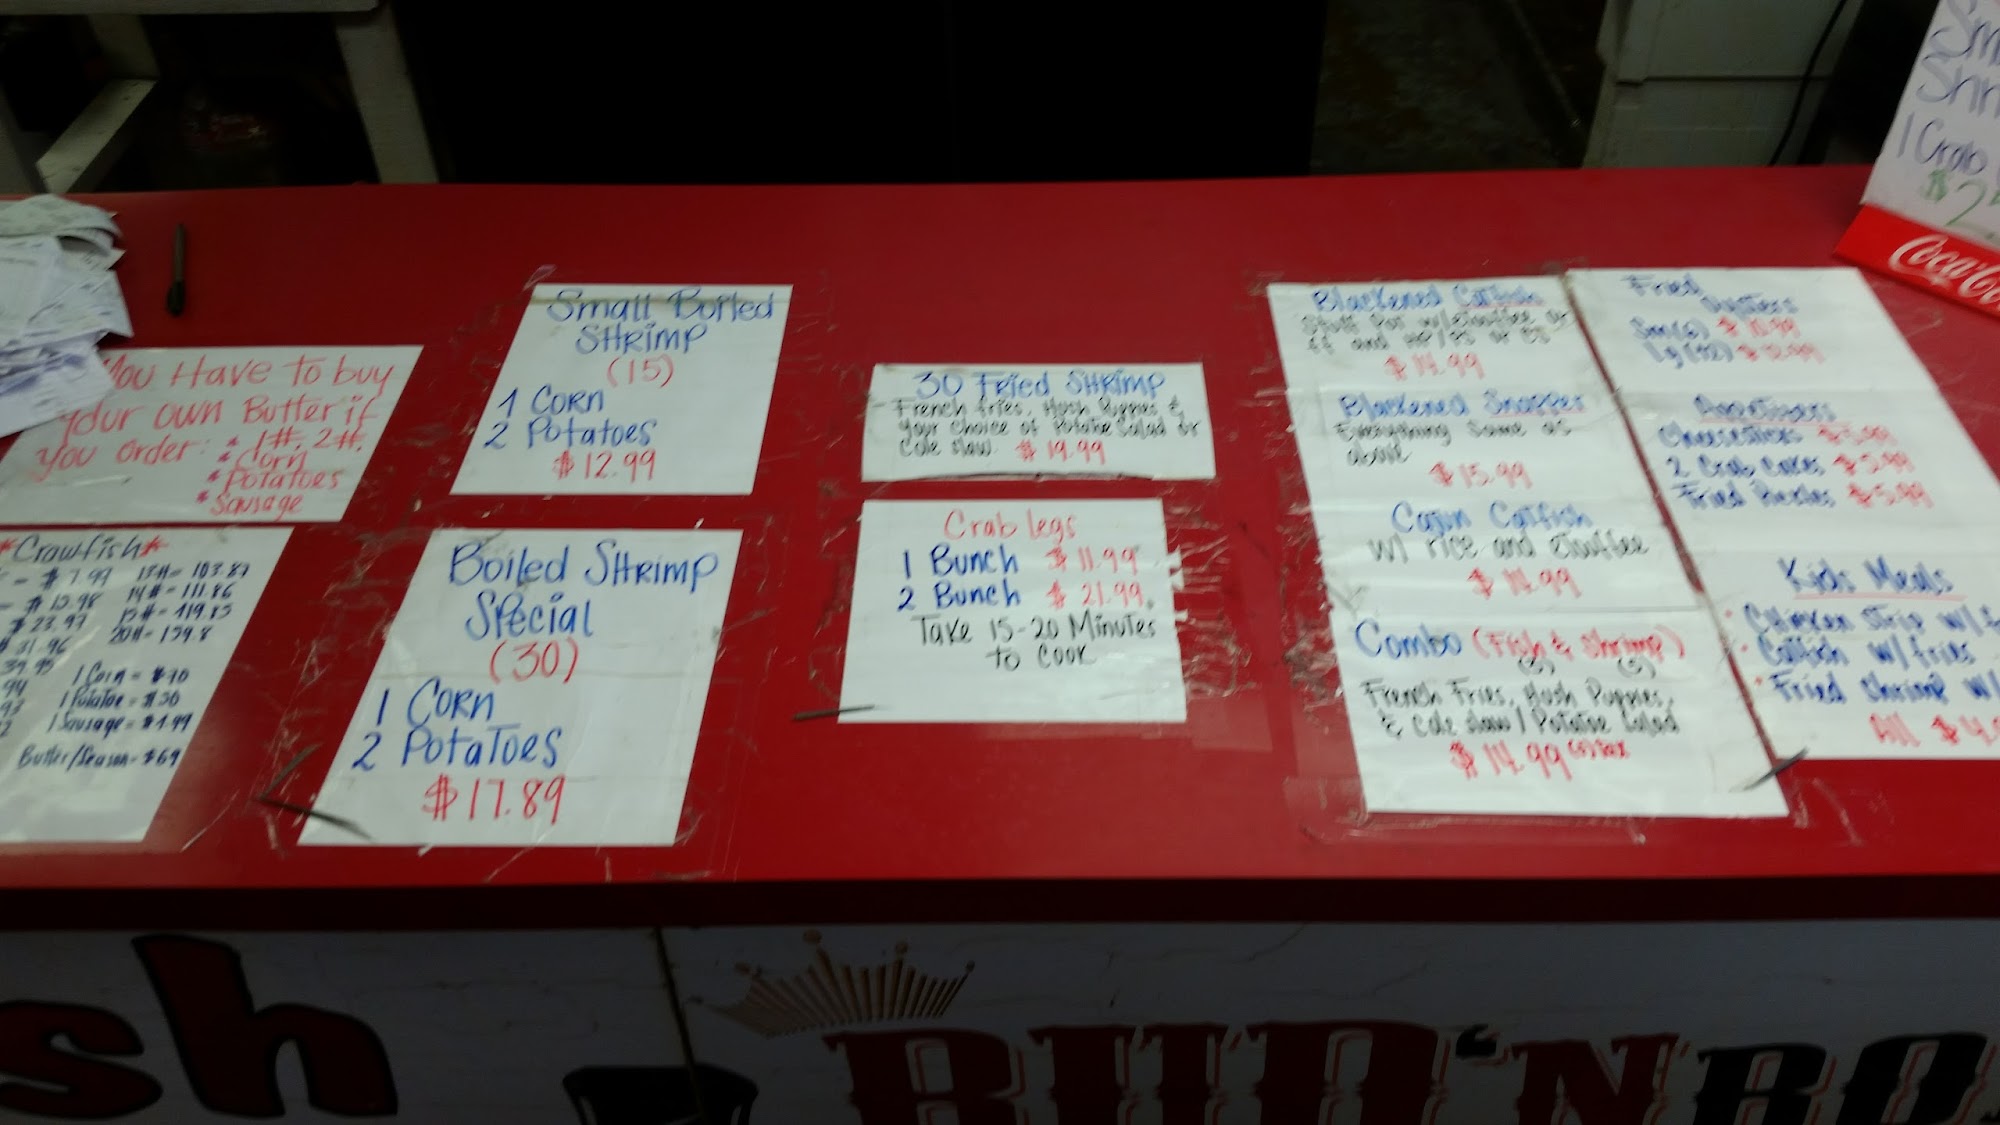 You Have to buy
your own Butter if
you order: * 1#, 2#,
* Corn
* Potatoes
* Sausage
*Crawfish*
- $7.99 13#= 103.87
- $15.98 14#= 111.86
$23.97 15#= 119.85
$31.96 20#= 159.8
39.95
94 1 Corn = $
93 1 Potatoe = $
2 1 Sausage = $1.99
Butter/Season = $69
Small Boiled
SHRIMP
(15)
1 CORN
2 Potatoes
$12.99
Boiled SHRIMP
Special
(30)
1 CORN
2 Potatoes
$17.89
30 Fried SHRIMP
- French fries, Hush Puppies &
your choice of Potatoe Salad or
Cole slaw. $19.99
Crab legs
1 Bunch $11.99
2 Bunch $21.99
Take 15-20 Minutes
to Cook
Blackened Catfish
w/ etouffee or
ff and
$14.99
Blackened Snapper
Everything same as
above
$15.99
Cajun Catfish
w/ rice and etouffee
$14.99
Combo (Fish & Shrimp)
French Fries, Hush Puppies,
& Cole slaw / Potatoe Salad
$14.99
Fried
Oysters
Sm(6) $10.99
Lg(12)
Appetizers
Cheesesticks $5.99
2 Crab Cakes $5.99
Fried Pickles $5.99
Kids Meals
• Chicken Strip w/ f
• Catfish w/ fries
• Fried Shrimp w/
All $4.9
Sm
Shr
1 Crab
$2
Coca-Co
sh
BUD'N BO